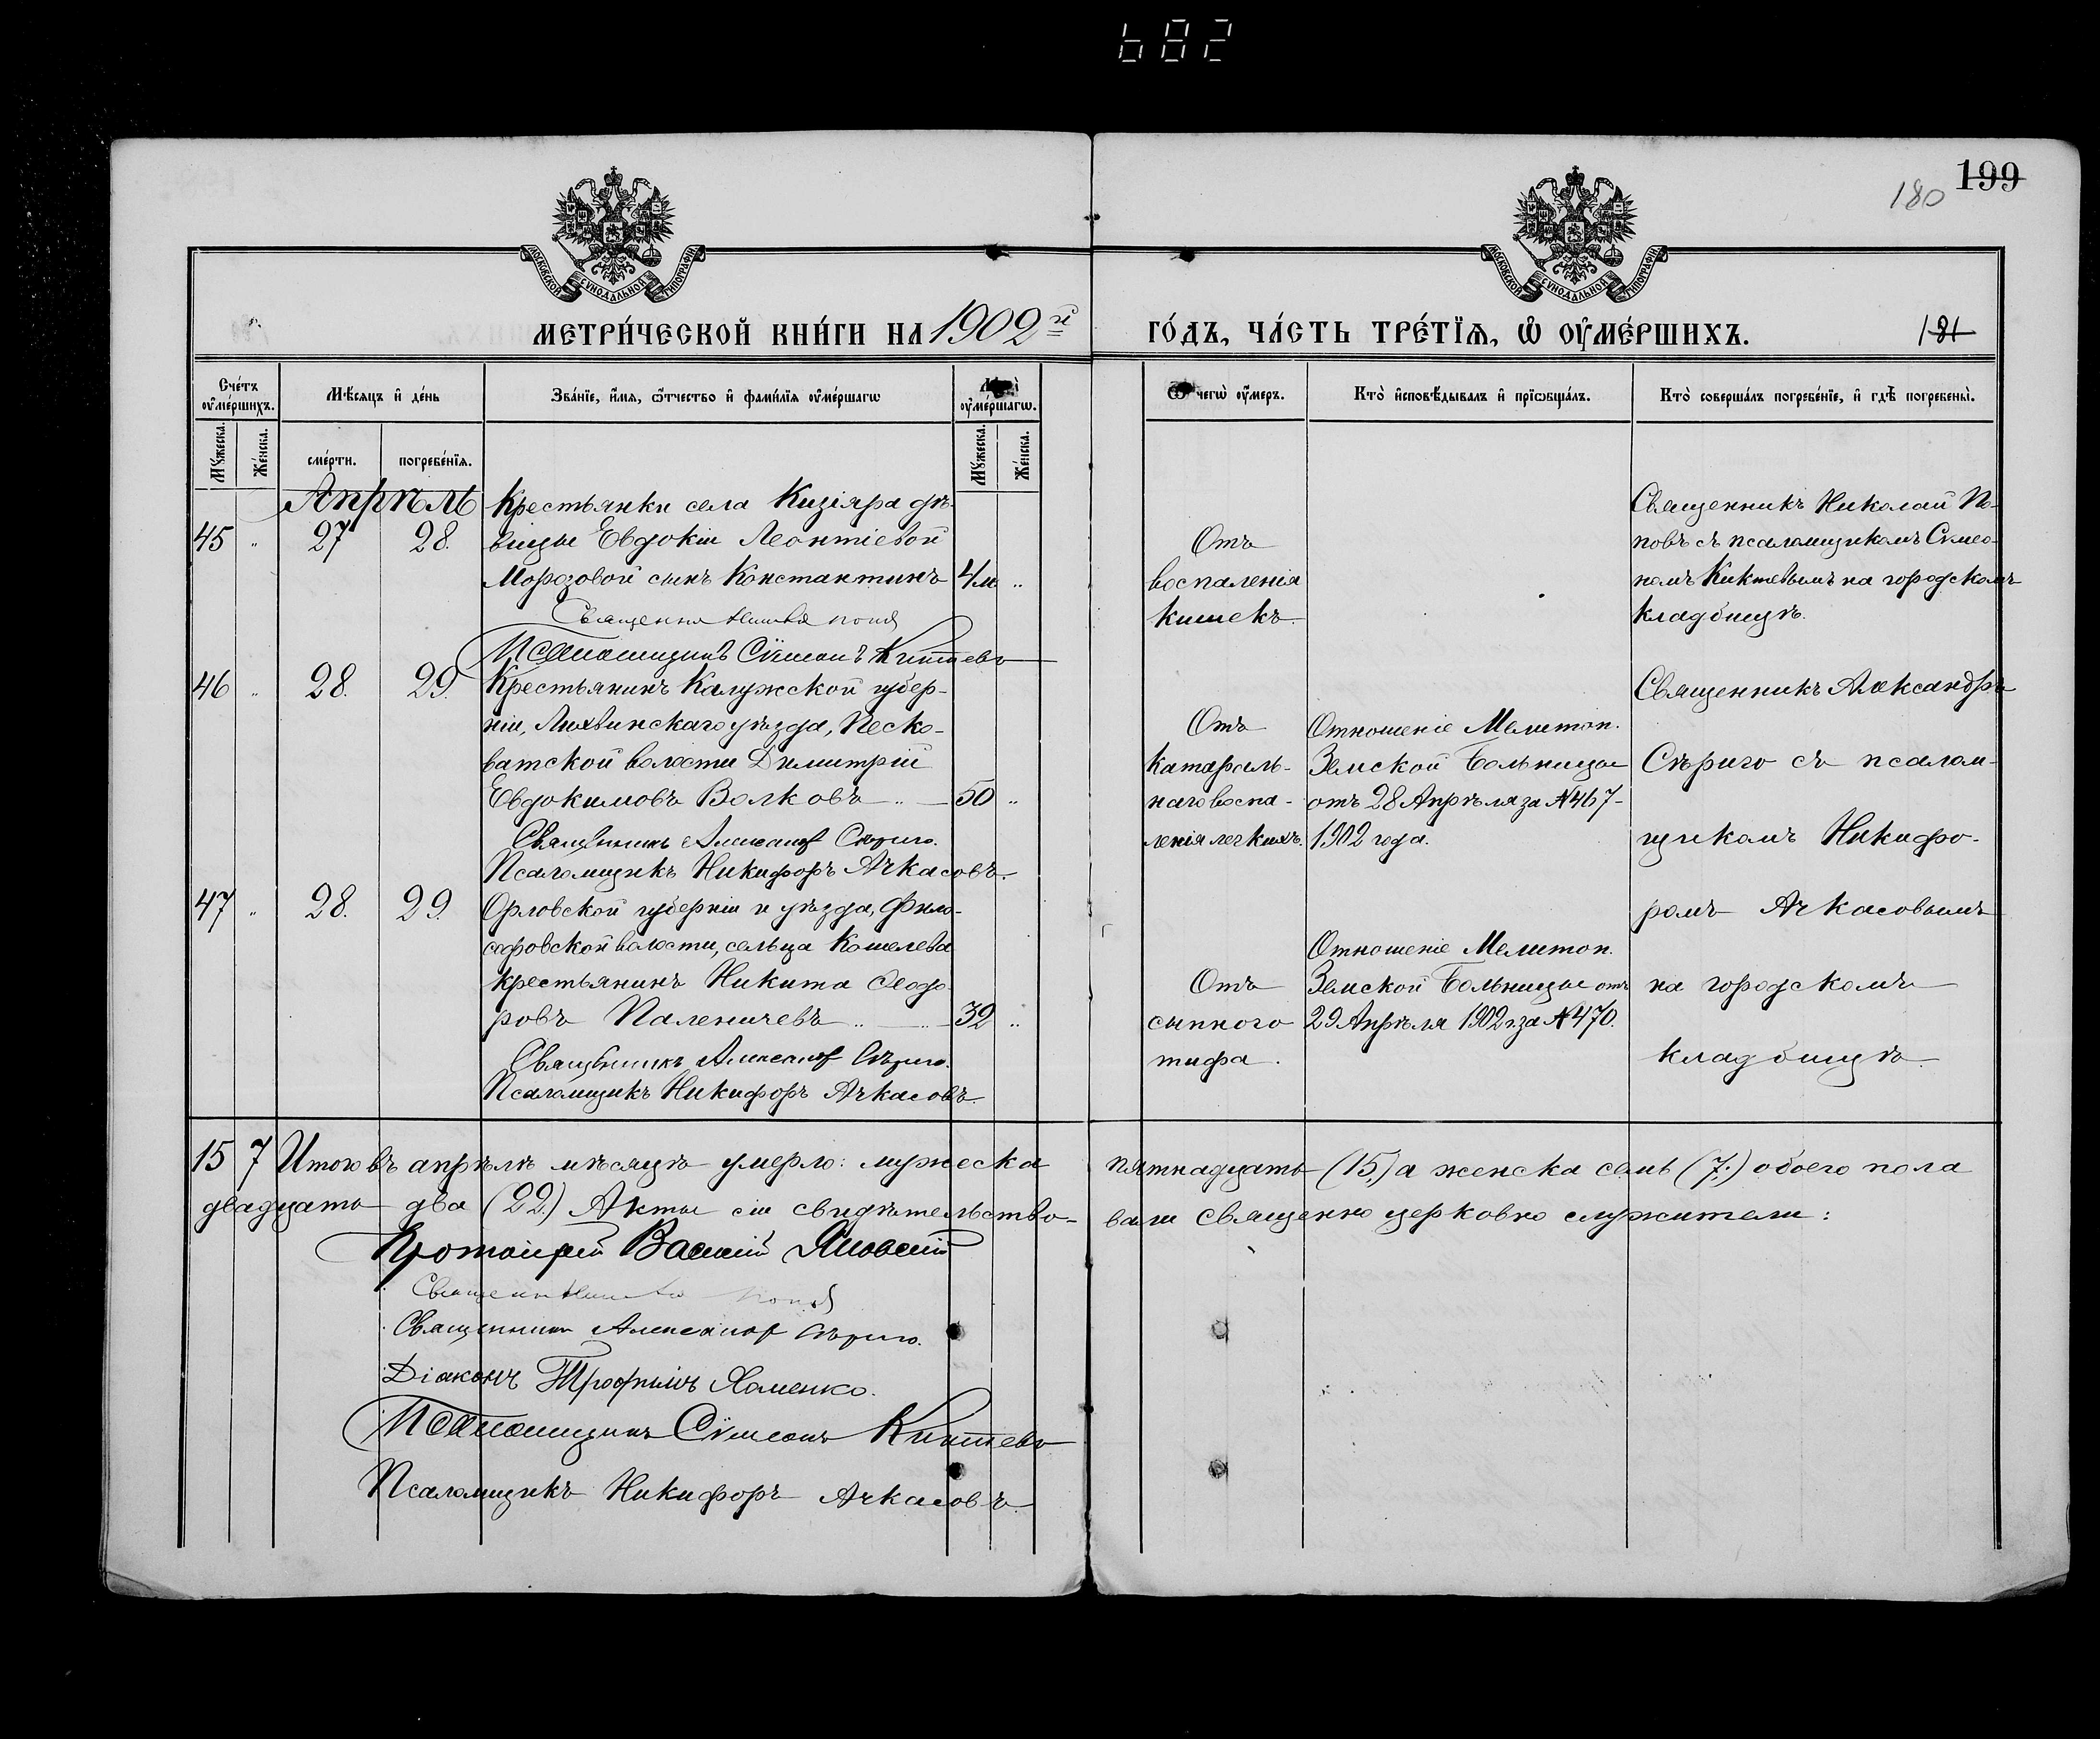 682
199
180
МОСКОВСКОЙ СѴНОДАЛЬНОЙ ТИПОГРАФІИ
МОСКОВСКОЙ СѴНОДАЛЬНОЙ ТИПОГРАФІИ
МЕТРИ́ЧЕСКОЙ КНИ́ГИ НА 1902й
ГО́ДЪ, ЧА́СТЬ ТРЕ́ТЇѦ, Ѡ҆ ОУ҆МЕ́РШИХЪ.
181
Сче́тъ оу҆ме́ршихъ.
Мѣ́сяцъ и҆ де́нь
Зва́нїе, и҆́мя, ѻ҆́тчество и҆ фами́лїя оу҆ме́ршагѡ
оу҆ме́ршагѡ.
Ѿ чегѡ̀ оу҆́меръ.
Кто̀ и҆сповѣ́дывалъ и҆ прїѡбща́лъ.
Кто̀ соверша́лъ погребе́нїе, и҆ гдѣ̀ погребены̀.
Мꙋ́жеска.
Же́нска.
сме́рти.
погребе́нїя.
Мꙋ́жеска.
Же́нска.
Апрѣль
Крестьянки села Кизіяра дѣ-
45 " 27 28. вицы Евдокіи Леонтіевой
Морозовой сынъ Константинъ 4/м "
Псаломщикъ Сѵмеонъ Киктевъ
Отъ
воспаленія
кишекъ.
Священникъ Николай По-
повъ съ псаломщикомъ Сѵмео-
номъ Киктевымъ на городскомъ
кладбищѣ.
46 " 28. 29. Крестьянинъ Калужской губер-
ніи, Лихвинскаго уѣзда, Песко-
ватской волости Димитрій
Евдокимовъ Волковъ " 50 "
Священникъ Александръ Сѣриго.
Псаломщикъ Никифоръ Ачкасовъ.
Отъ
катараль-
наго воспа-
ленія легкихъ.
Отношеніе Мелитоп.
Земской Больницы
отъ 28 Апрѣля за №467-
1902 года.
Священникъ Александръ
Сѣриго съ псалом-
щикомъ Никифо-
ромъ Ачкасовымъ
на городскомъ
кладбищѣ.
47 " 28. 29. Орловской губерніи и уѣзда, Фило-
софовской волости, сельца Кошелева
крестьянинъ Никита Ѳеодо-
ровъ Паленичевъ " " 32 "
Священникъ Александръ Сѣриго.
Псаломщикъ Никифоръ Ачкасовъ.
Отъ
сыпного
тифа.
Отношеніе Мелитоп.
Земской Больницы отъ
29 Апрѣля 1902 г. за №470.
15 7 Итого въ апрѣлѣ мѣсяцѣ умерло: мужеска пятнадцать (15.) а женска семь (7.) обоего пола
двадцать два (22.) Акты сіи свидѣтельство- вали священно церковно служители:
Протоіерей Василій Яновскій
Священникъ Александръ Сѣриго.
Діаконъ Трофимъ Хоменко.
Псаломщикъ Сѵмеонъ Киктевъ
Псаломщикъ Никифоръ Ачкасовъ